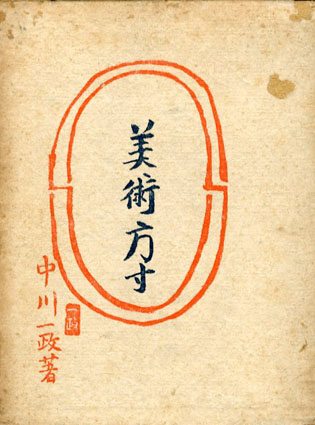 美術方寸
中川一政著
一政